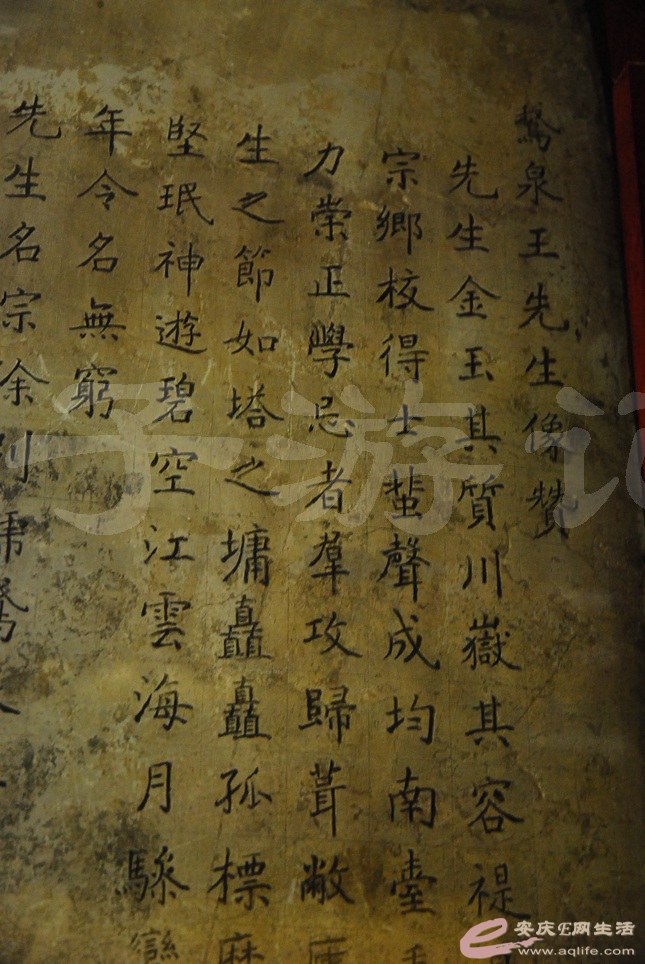 鶖泉王先生像贊
先生金玉其質川嶽其容禔
宗鄉校得士蜚聲成均南臺
力崇正學忌者羣攻歸葺敝
生之節如塔之墉矗矗孤標
堅珉神遊碧空江雲海月驂
年令名無窮
先生名宗徐別
子游记
安庆E网生活
www.aqlife.com